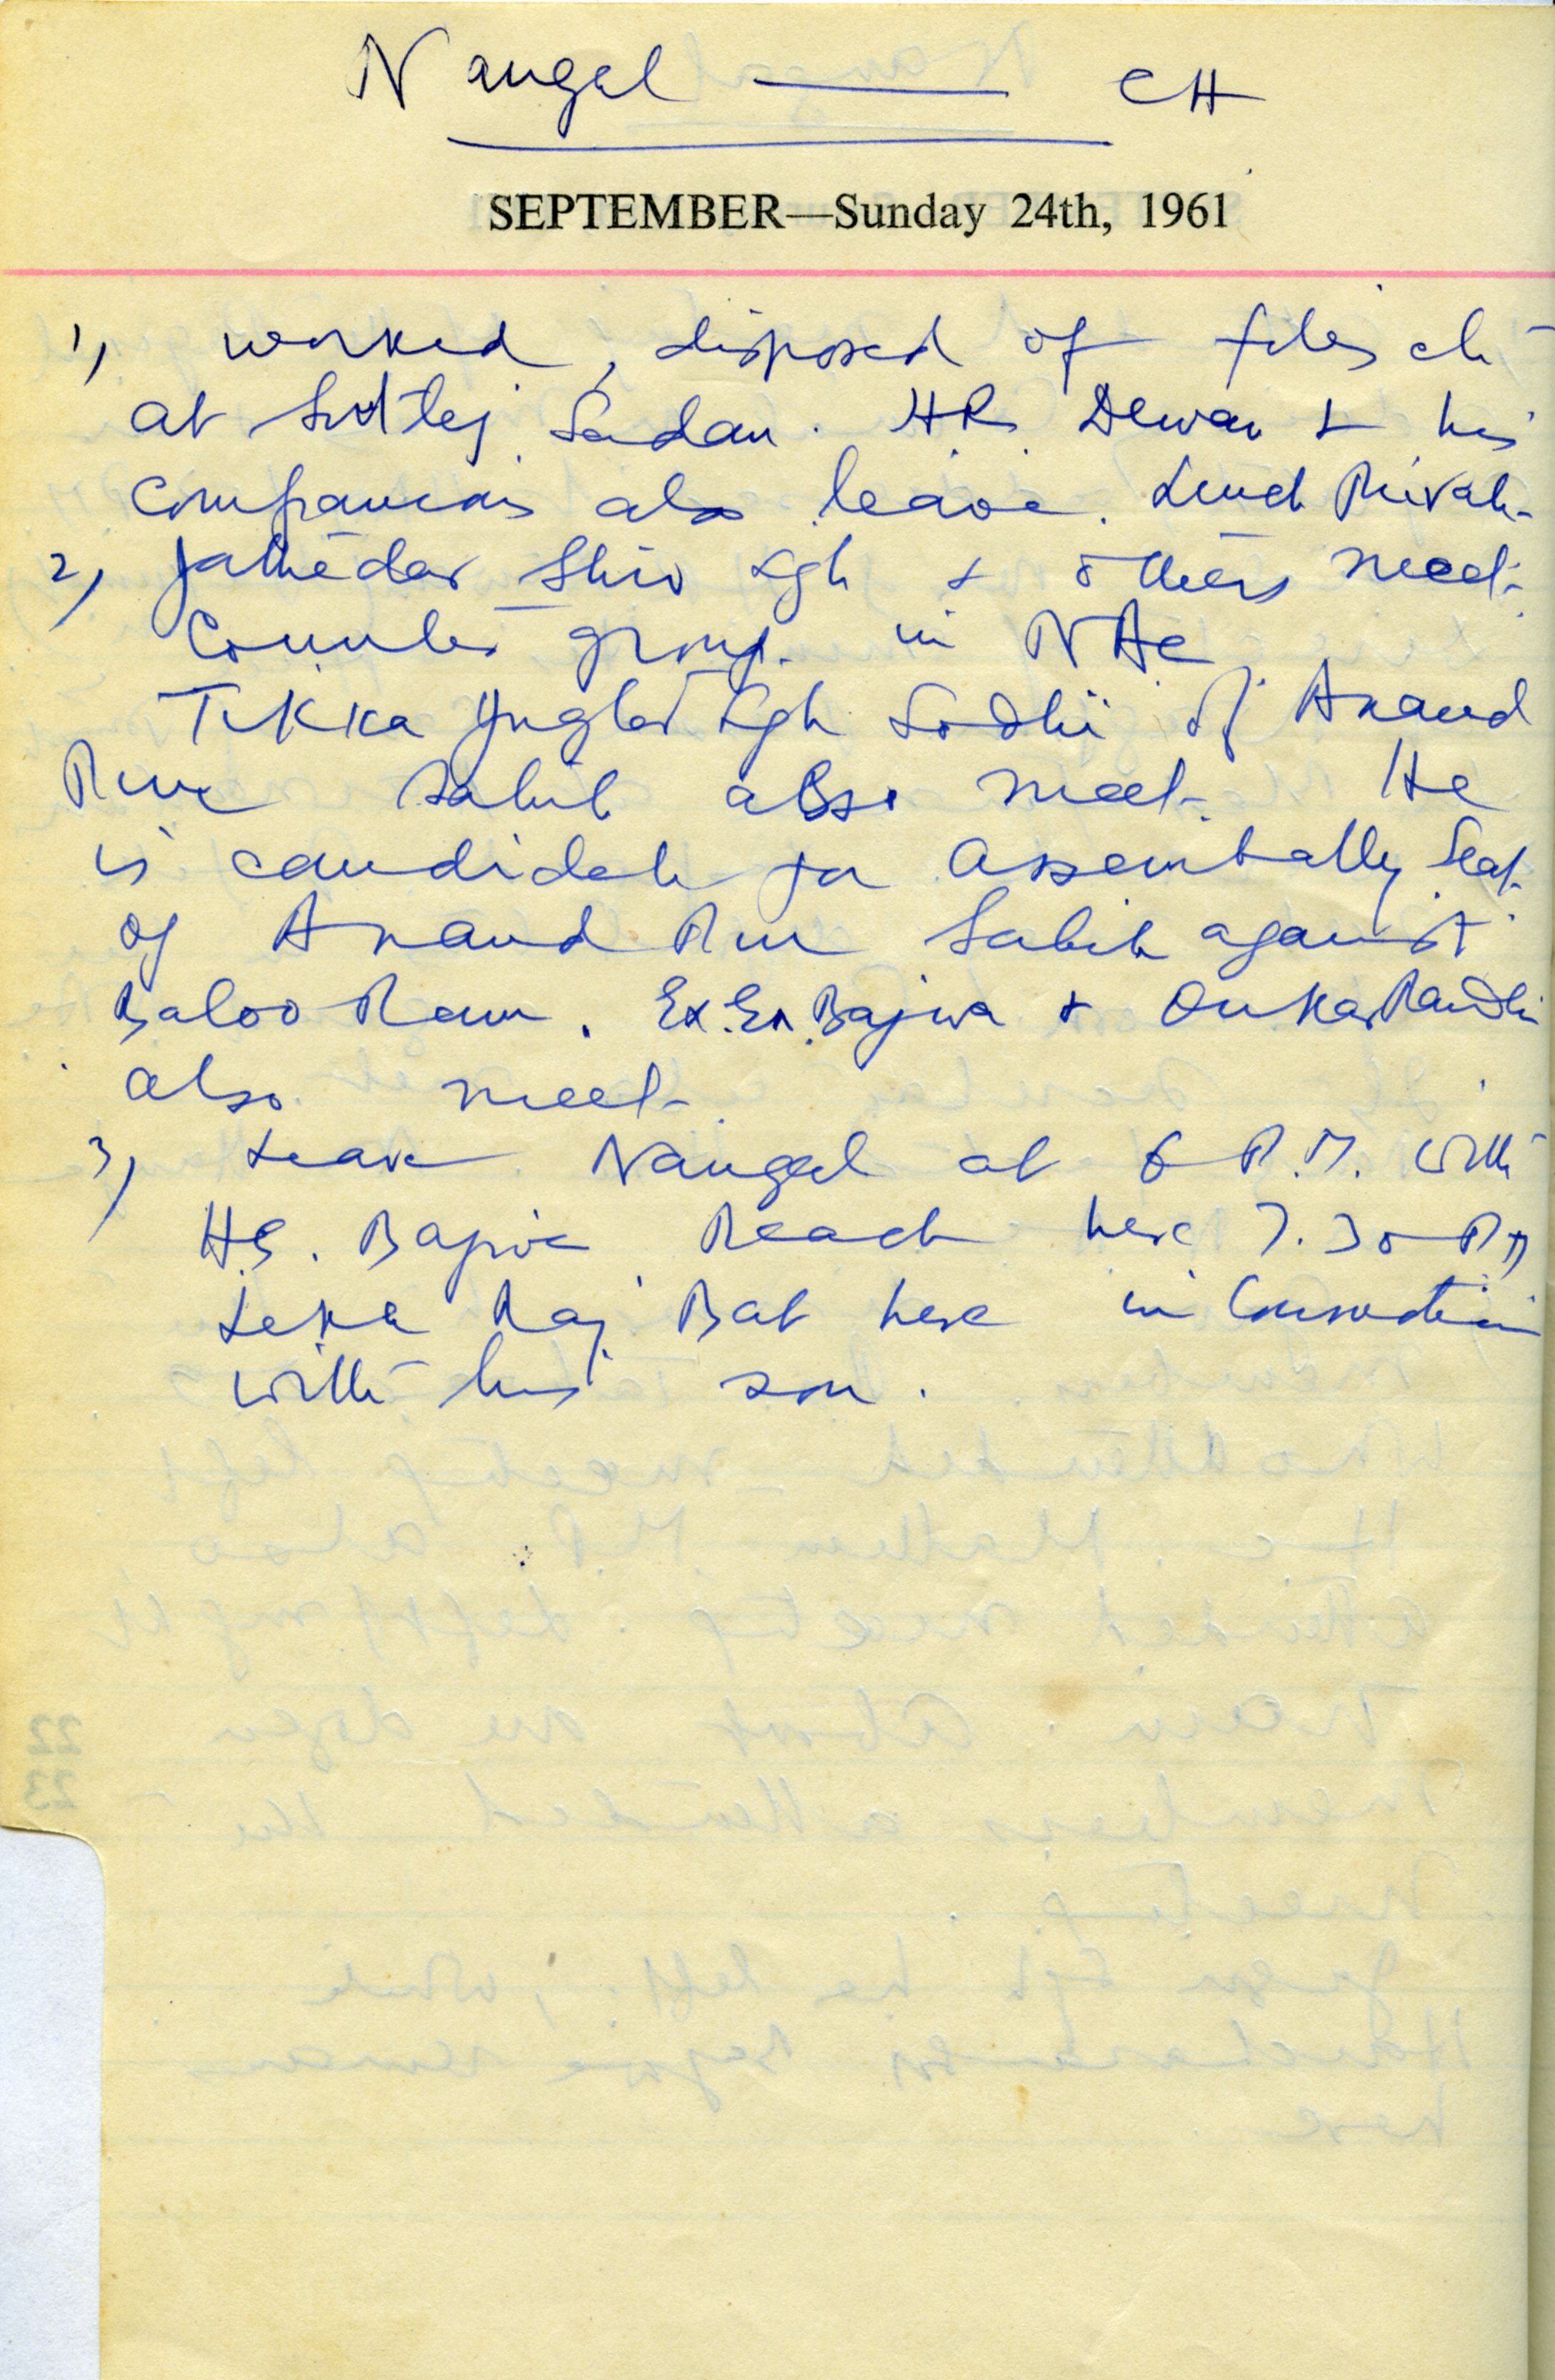 Nangal — CH
SEPTEMBER—Sunday 24th, 1961
1) worked, disposed of files etc
at Sutlej Sadan. HR Dewan & his
companions also leave. Lunch Private
2) Jathedar Shiv Sgh & others meet.
Counter group in NAC
Tikka Sgh Sodhi of Anand
Pur Sahib also meet. He
is candidate for Assembally Seat
of Anand Pur Sahib against
Baloo Ram. Ex. En. Bajwa & Onkar
also meet.
3) Leave Nangal at 6 P.M. with
HS. Bajwa Reach here 7.30 PM
Lekh Raj Bat here in Connection
with his son.